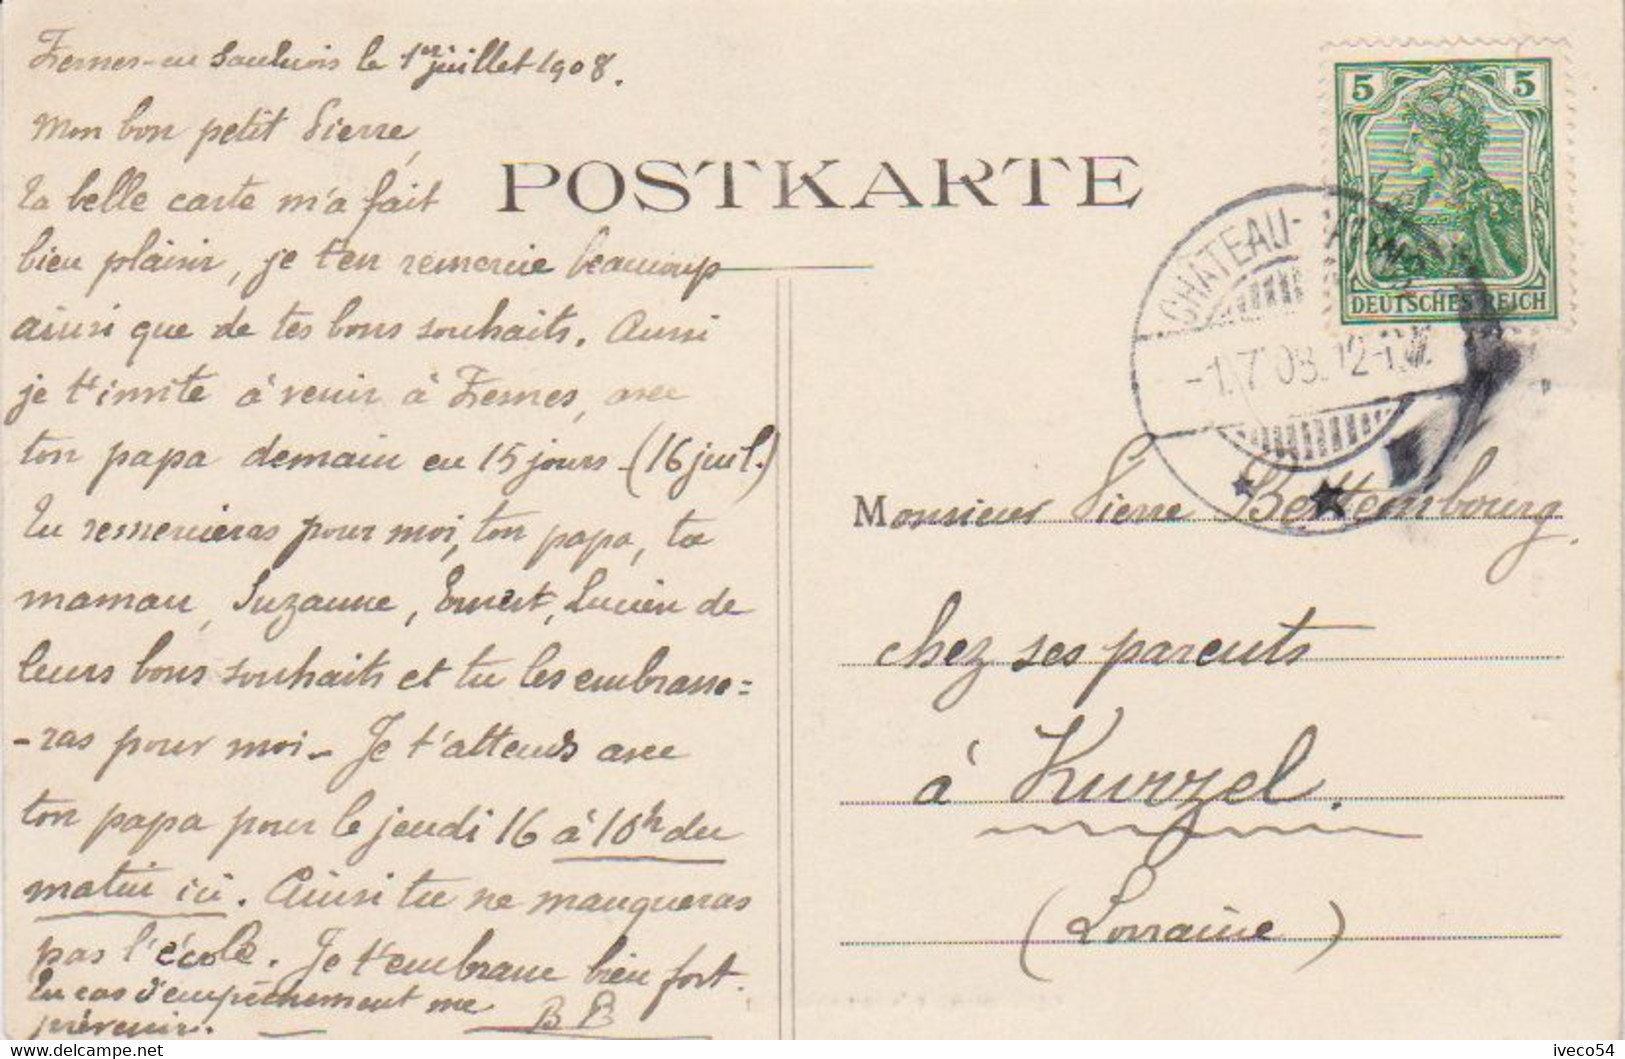 Fesnes-en Saulnois le 1er juillet 1908.
Mon bon petit Pierre,
Ta belle carte m'a fait
bien plaisir, je t'en remercie beaucoup
ainsi que de tes bons souhaits. Aussi
je t'invite à venir à Fresnes, avec
ton papa demain en 15 jours - (16 juil.)
Tu remercieras pour moi, ton papa, ta
maman, Suzanne, Ernest, Lucien de
leurs bons souhaits et tu les embrasse=
-ras pour moi - Je t'attends avec
ton papa pour le jeudi 16 à 10h du
matin ici. Ainsi tu ne manqueras
pas l'école. Je t'embrasse bien fort.
En cas d'empêchement me
prévenir. BB
POSTKARTE
5 5
DEUTSCHES REICH
CHATEAU-
-1.7.08. 12-1
Monsieur Pierre Bettembourg,
chez ses parents
à Kurzel.
(Lorraine)
delcampe.net
iveco54